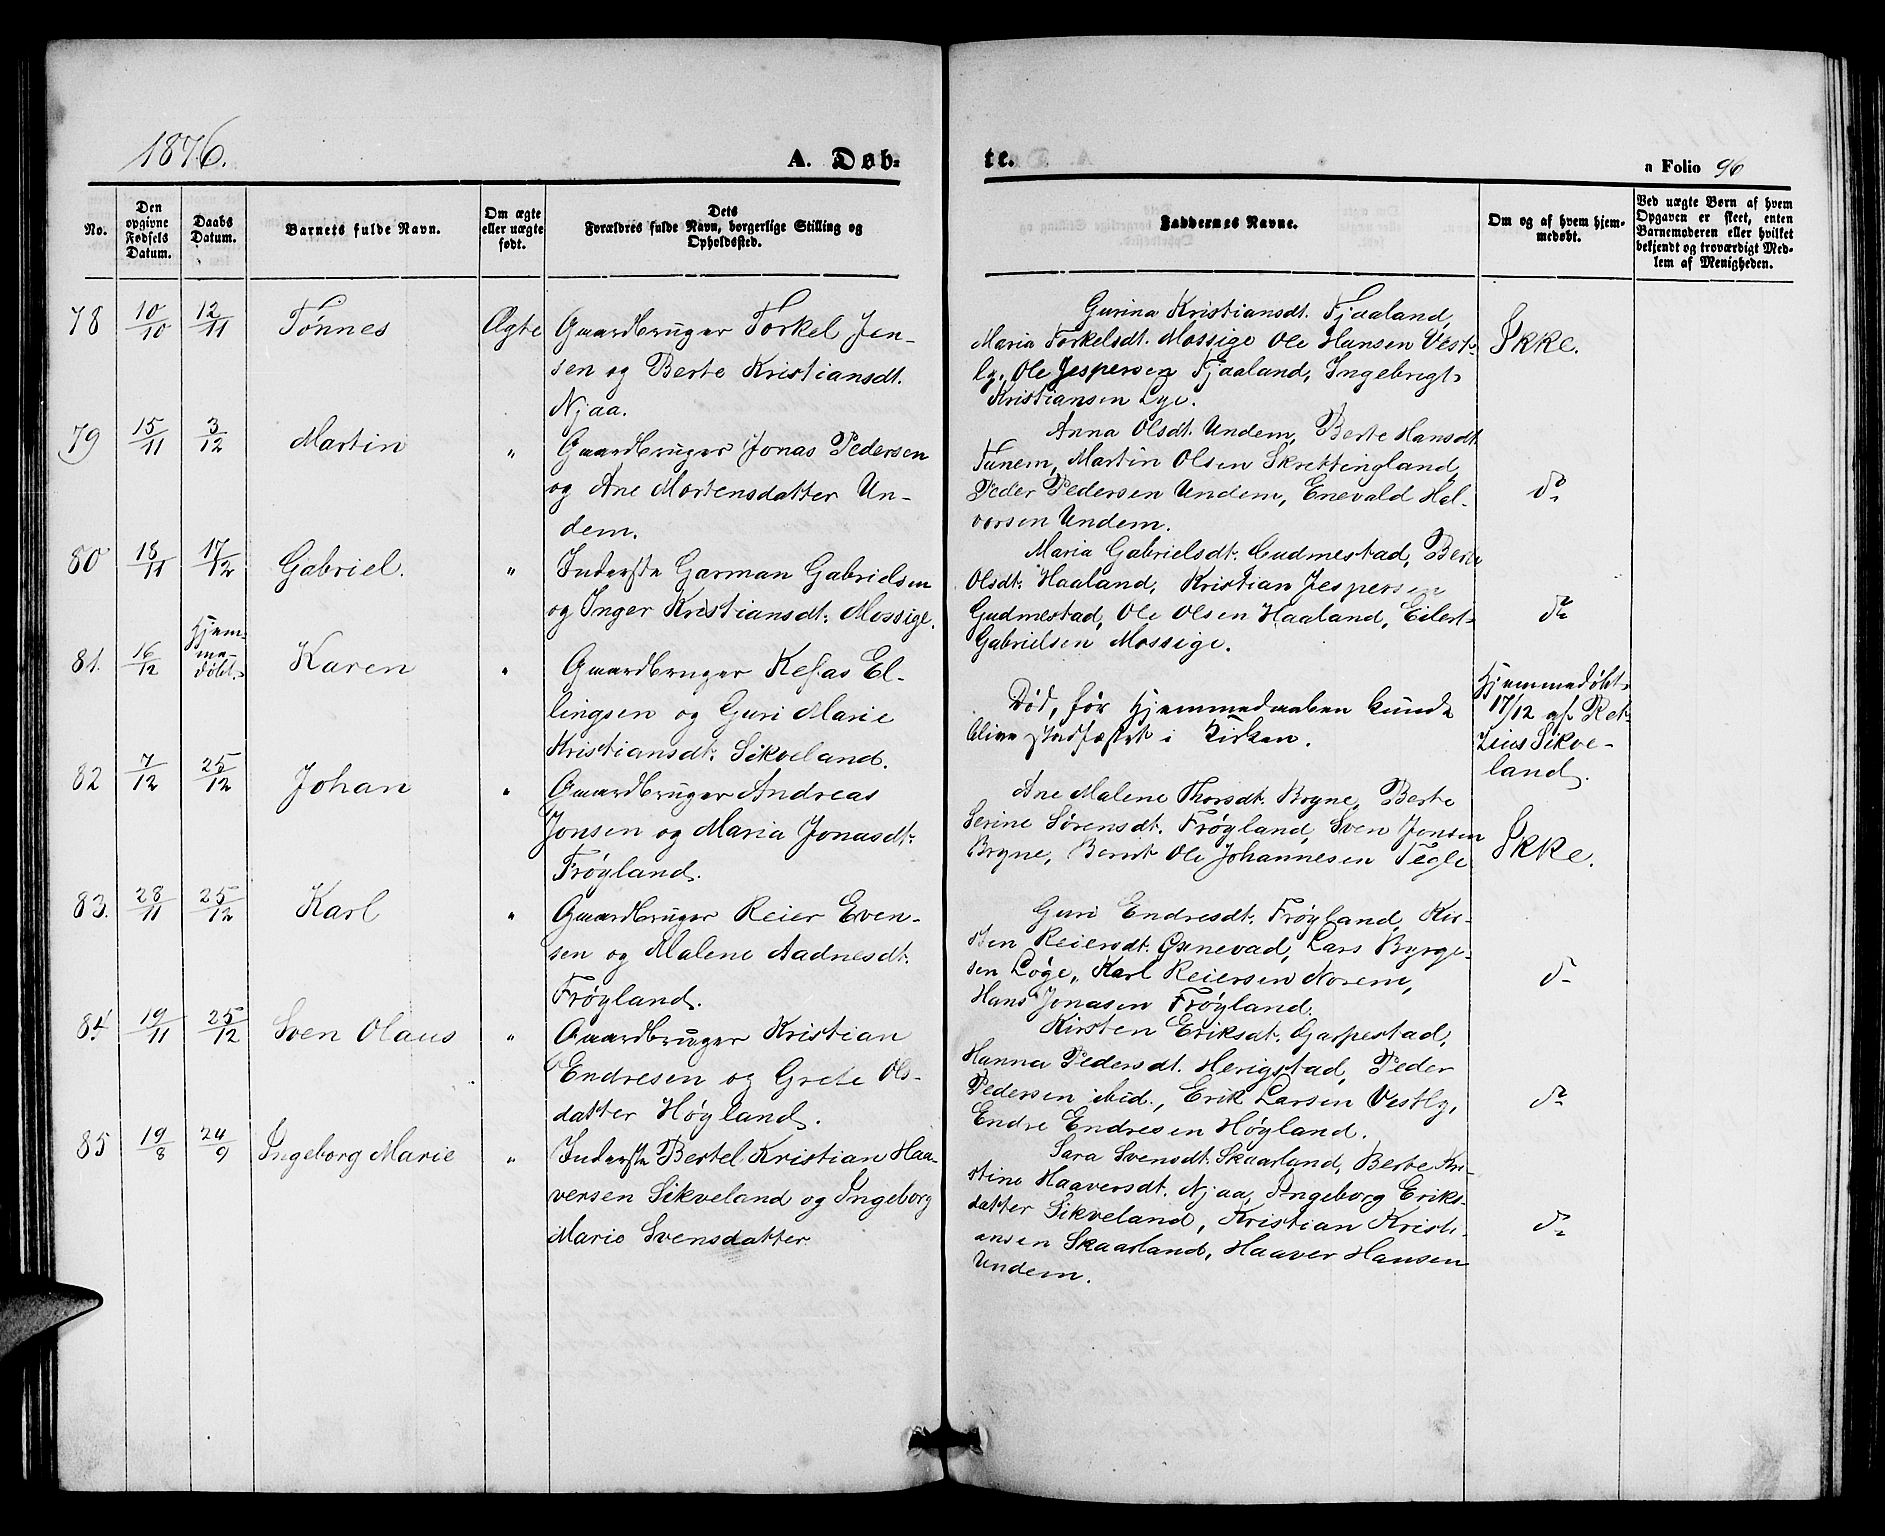 1876.
A. Døb-
te.
a Folio 96
No.
Den
opgivne
Fødsels
Datum.
Daabs
Datum.
Barnets fulde Navn.
Om ægte
eller uægte
født.
Dets
Forældres fulde Navn, borgerlige Stilling og
Opholdssted.
Faddernes Navne.
Om og af hvem hjem-
medøbt.
Ved uægte Børn af hvem
Opgaven er skeet, enten
Barnemoderen eller hvilket
bekjendt og troværdigt Med-
lem af Menigheden.
78 10/10 12/11 Tönnes Ægte Gaardbruger Torkel Jen-
sen og Berte Kristiansdt.
Njaa.
Gurina Kristiansdt. Fjaaland,
Maria Torkelsdt. Mossige Ole Hansen Vest-
ly, Ole Jespersen Fjaaland, Ingebrigt
Kristiansen Lye.
Ikke.
79 15/11 3/12 Martin " Gaardbruger Jonas Pedersen
og Ane Mortensdatter Un-
dem.
Anna Olsdt. Undem, Berte Hansdt.
Tunem, Martin Olsen Skrettingland,
Peder Pedersen Undem, Enevald Hal-
vorsen Undem.
do
80 15/11 17/12 Gabriel. " Inderste Garman Gabrielsen
og Inger Kristiansdt: Mossige.
Maria Gabrielsdt: Gudmestad, Berte
Olsdt: Haaland, Kristian Jespersen
Gudmestad, Ole Olsen Haaland, Eilert
Gabrielsen Mossige.
do
81. 16/12 Hjem-
ma-
døbt. Karen " Gaardbruger Kefas El-
lingsen og Guri Marie
Kristiansdt: Sikveland.
Død, før Hjemmedaaben kunde
blive stadfæstet i Kirken.
Hjemmedøbt
17/12 af
Sikve-
land.
82 7/12 25/12 Johan " Gaardbruger Andreas
Jonsen og Maria Jonasdt:
Frøyland.
Ane Malene Thorsdt. Bryne, Berte
Serine Sørensdt. Frøyland, Sven Jonsen
Bryne, Bernt Ole Johannesen Tegle
Ikke.
83. 28/11 25/12 Karl " Gaardbruger Reier Even-
sen og Malene Aadnesdt:
Frøyland.
Guri Endresdt: Frøyland, Kir-
sten Reiersdt: Øxnevad, Lars Byrge-
sen Løge, Karl Reiersen Norem,
Hans Jonasen Frøyland.
do
84. 19/11 25/12 Sven Olaus " Gaardbruger Kristian
Endresen og Grete Ols-
datter Høyland.
Kirsten Eriksdt: Garpestad,
Hanna Pedersdt. Herigstad, Peder
Pedersen ibid., Erik Larsen Vestly,
Endre Endresen Høyland.
do
85 19/8 24/9 Ingeborg Marie " Inderste Bertel Kristian Haa-
versen Sikveland og Ingeborg
Marie Svensdatter
Sara Svensdt. Skaarland, Berte Kri-
stine Haaversdt. Njaa, Ingeborg Eriks-
datter Sikveland, Kristian Kristi-
ansen Skaarland, Haaver Hansen
Undem.
do